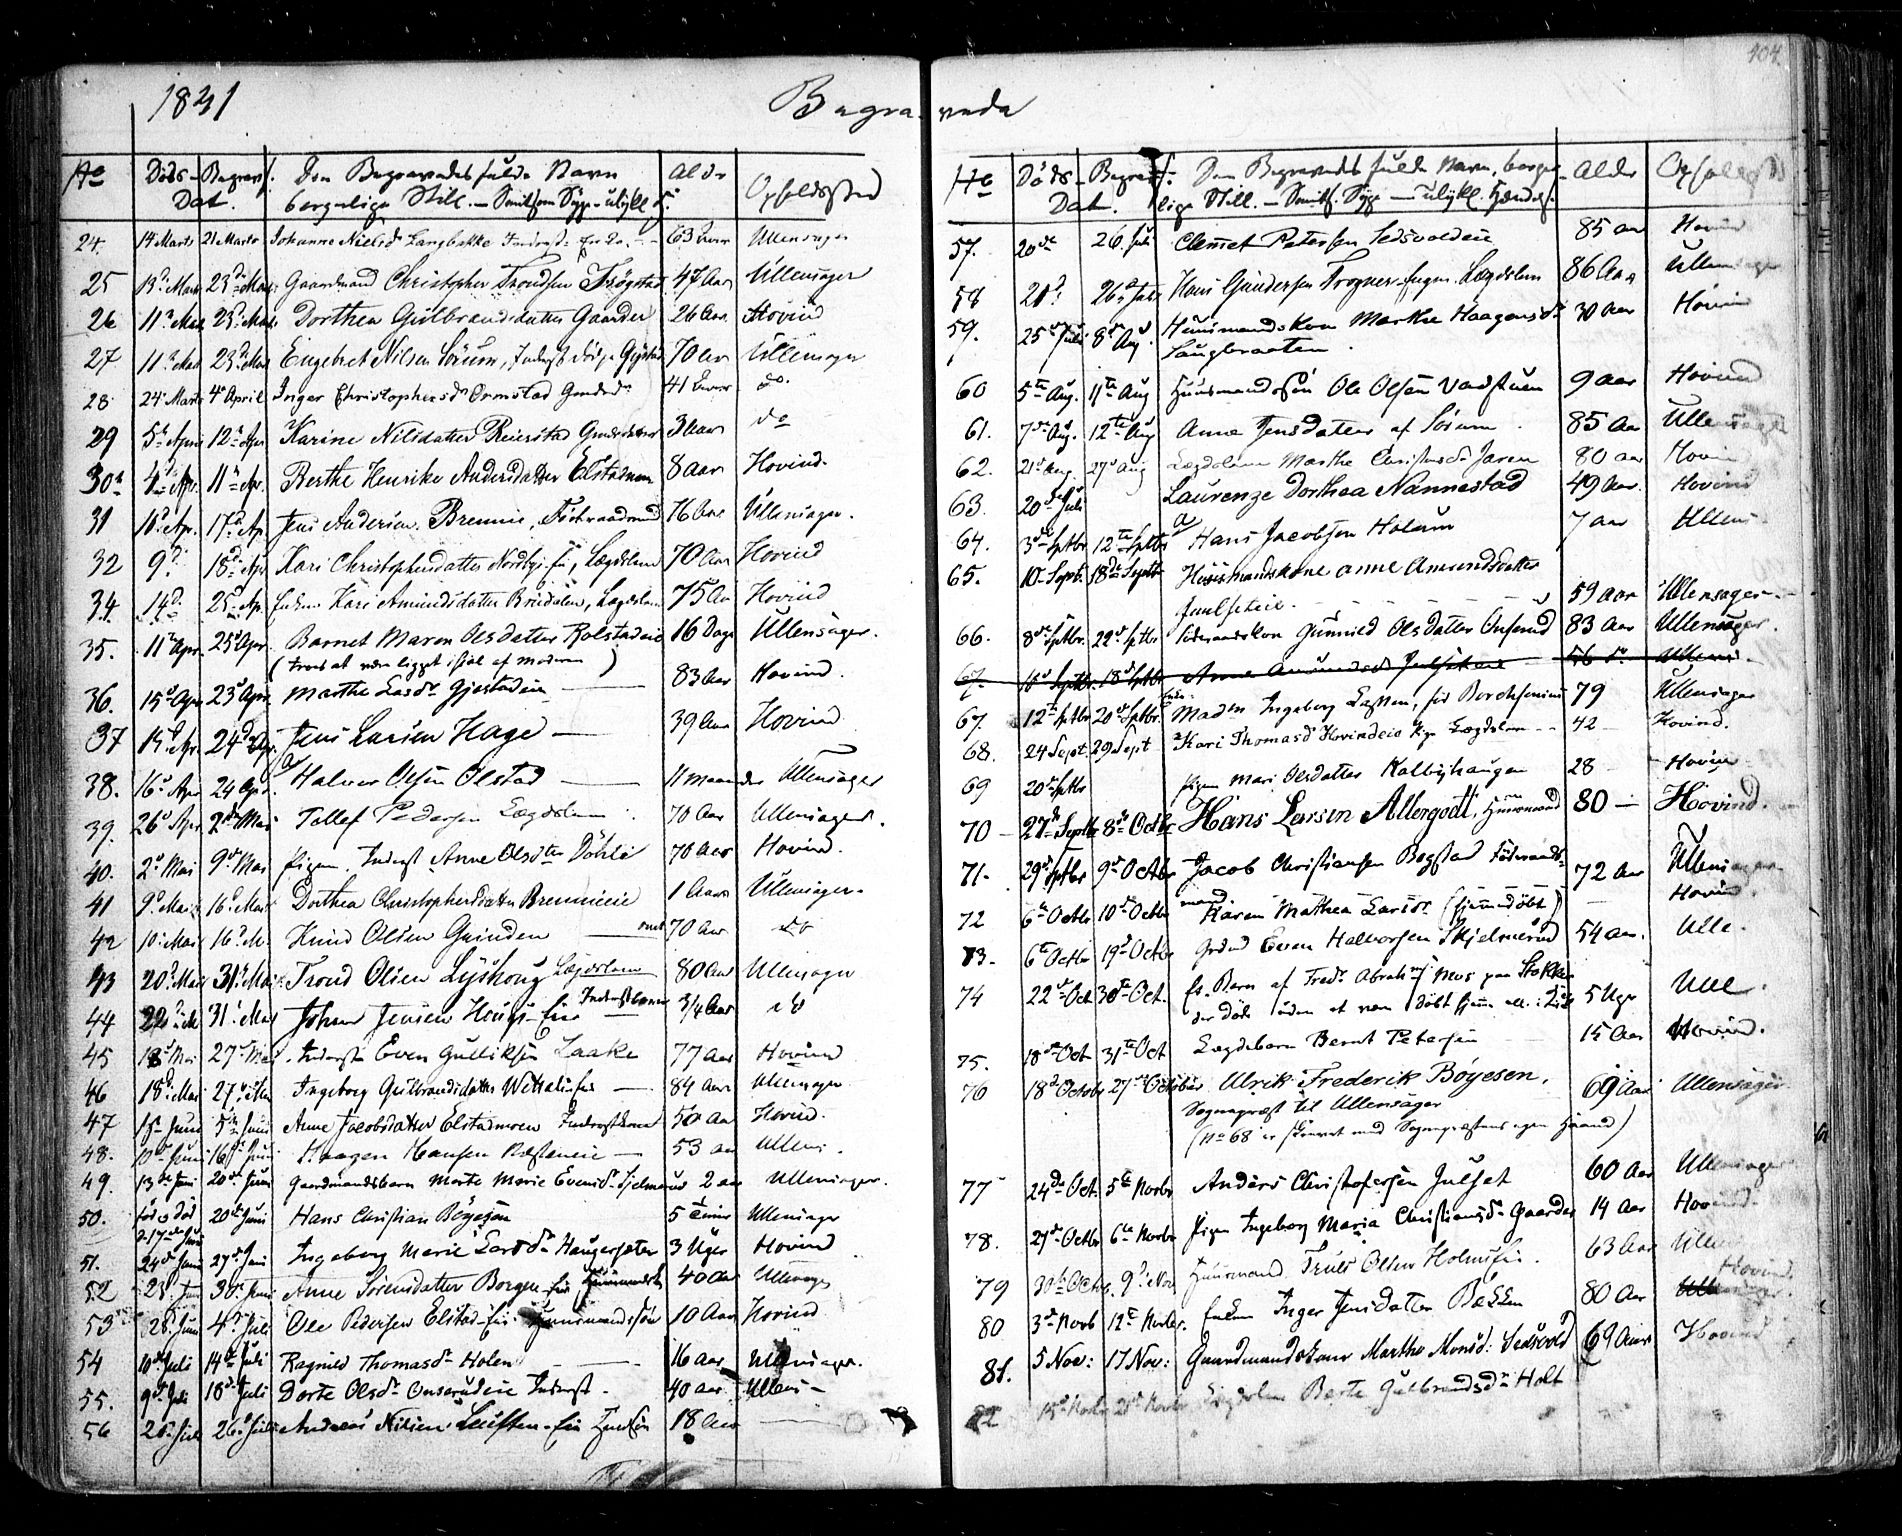 404
1841 Begravede
No Døds- Begrav. Den Begravedes fulde Navn Alder Opholdssted
Dat. borgerlige Still. — Smitsom Syge — ulykl. H.
24. 14 Marts 21 Marts Johanne Nielsd. Langbakke 63 Ullensager
25 13d Mart 23de Marts Gaardmand Christopher Trondsen Trøgstad 47 Aar Ullensager
26 11d Mart 23d Mart Dorthea Gulbrandsdatter Gaarder 26 Aar Hovind
27 11d Mart 23d Mart Engebret Nilsen Sørum, Inderst 70 Aar Ullensager
28 24d Marts 4d April Inger Christophersd. Ormstad 41 do.
29 5d April 12d Apr Karine Nilsdatter Reierstad 3 Aar do
30 4d Apr. 11d Apr. Berthe Henrike Andersdatter Elstadmoen 8 Aar Hovind.
31 10d Ap. 17d Ap. Jens Andersen Brennie, Føderaadmand 76 Aar Ullensager.
32 9d 18d Apr Kari Christophersdatter Nordbye Lægdslem 70 Aar Hovind
34. 14d. 25d Ap. Enken Kari Amundsdatter Lægdslem 75 Aar Hovind
35. 11d Apr. 25d Apr. Barnet Maren Olsdatter Rolstadeie 16 Dage Ullensager.
(troes at være ligget ihjel af Moderen)
36. 15d Apr 23d Apr. Marthe Larsdr Gjestadeie — 83 Aar Hovind.
37 15d Apr. 24d Apr. Jens Larsen Hage — 39 Aar Hovind
38. 16d Apr 24 Apr. Halvor Olsen Olstad — 11 Maaneder Ullensager
39. 26d Apr 2den Mai Tollef Pedersen Lægdslem 70 Aar Ullensager.
40. 2d Mai 9d Mai Pigen Inderst Anne Olsdtter Døhli 70 Aar Hovind.
41 9d Mai 16d Mai Dorthea Christophersdatter Brennieie 1 Aar Ullensager.
42 10d Mai 16d M. Knud Olsen Grinden 70 Aar do
43 20d Mai 31d Mai Trond Olsen Lyshoug Lægdslem 80 Aar Ullensager
44 22d M 31d Mai Johan Jensen Hougs-Eie Inderstbarn 3/4 Aar do
45 18d Mai 27d Mai Inderst Even Gulliksen Laake 77 Aar Hovind
46 18d Mai 27d Mai Ingeborg Gulbrandsdatter — 84 Aar Ullensager
47 1ste Juni 5te Juni Anne Jacobsdatter Elstadmoen Inderstkone 50 Aar Hovind.
48. 10d Juni 16d Juni Haagen Hansen — 53 Aar Ullens.
49. 13de Juni 20de Juni Gaardmandsbarn Marte Marie Evensd. Skjelmerud 2 Aar Ullensager.
50. født og død 20de Juni Hans Christian Bøyesen 5 Timer Ullensager
d. 17de Juni
51. 24de Juni 27de Juni Ingeborg Marie Larsd. Haugerseter 3 Uger Hovind
52 23d Juni 30d Juni Anne Sørensdatter Borgen-Eie 40 Aar Ullensager
53 28d Juni 4d Juli Ole Pedersen Elstad-Eie Huusmandssøn 10 Aar Hovind
54 10de Juli 14de Juli Ragnild Thomasd. Holen 16 Aar Ullensager.
55. 9de Juli 18de Juli Dorte Olsd. Onserudeie Inderst. 40 Aar Ullens —
56 20d Juli 26d Juli Andreas Nilsen 18 Aar —
No Døds- Begrav. Den Begravedes fulde Navn, borger- Alder Opholdssted
Dat. lige Still. — Smits. Syge — Ulykl. Hændels.
57. 20de 26. Juli Clemet Petersen Ledsvoldeie 85 Aar Hovind
58 21d 26d Juli Hans Gundersen Trogner Lægdslem 86 Aar Ullensager
59. 25de Juli 8d Aug. Huusmandskone Marthe Haagensdr 30 Aar Hovind
Laugbraaten.
60 5te Aug. 11te Aug Huusmandssøn Ole Olsen Vadstuen 9 Aar Hovind
61. 7de Aug. 12te Aug Anne Jensdatter af Sørum. 85 Aar Ullensager
62. 21d Aug. 27d Aug Lægdslem Marthe Christensdr Jaren 80 Aar Hovin
63. 20de Juli Laurenze Dorthea Nannestad 49 Aar. Hovind
64. 3de Septbr 12te Septbr Hans Jacobsen Holum 7 Aar Ullens
65. 10 Sept. 18de Septbr Huusmandskone Anne Amundsdatter
Juulseteie. 59 Aar Ullensager
66. 8de Septbr. 22d Septbr Føderaadskone Gunnild Olsdatter Onserud 83 Aar Ullensager.
67. 10d Septbr. 18d Septbr Anne Amundsd. Julseteie 56 Ullens
67. 12te Septbr 20de Septbr. Enke Madm Ingeborg Lassen, fød Borchsenius 79 Ullensager
68. 24 Sept. 29 Sept Kari Thomasd. Hovindeie Pige Lægdslem 42 — Hovind.
69 20de Septbr Pigen Mari Olsdatter Kalbyhaugen 28 — Hovin
70 — 27de Septbr 8de Octbr Hans Larsen Allergodt, Huusmand 80 — Hovind.
71. 29de Septbr 9de Octbr Jacob Christiansen Bogstad Føderaads- 72 Aar Ullensager
mand
72 6te Octbr 10de Octbr Karen Mathea Larsdr (hjemmedøbt) — Hovind.
73. 6te Octbr 19d Octbr Grdmd Even Halvorsen Skjelmerud 54 Aar. Ulle.
74 22de Oct 30te Oct. Et Barn af Fredr. Abrahms. Moe paa Stokke 5 Uger Ulle.
der døde uden at være døbt hjemme ell. i Kirke
75. 18de Oct 31te Oct Lægdebarn Bernt Petersen 15 Aar Hovind.
76 18d Octobr 27de October Ulrik Frederik Bøyesen, 69 Aar Ullensager
Sognepræst til Ullensager
(No 68 er skrevet med Sognepræstens egen Haand)
77 24de Oct. 5te Novbr Anders Christofersen Julset 60 Aar Ullensager
78. 27de Octbr 6te Novbr Pigen Ingeborg Maria Christiansdr Gaarder 14 Aar Hovind.
79 30te Octbr. 9d Nov Huusmand Truls Olsen Holmseie. 63 Aar Ullen
80 3de Novb 12te Novbr. Enken Inger Jensdatter Bakken 80 Aar Hovind
81. 5 Nov: 17 Nov: Gaardmandskone Marthe Monsd: Ledsvold 69 Aar Hovind
82 15d Novbr 21d Novbr Lægdslem Berte Gulbrandsdr Holt